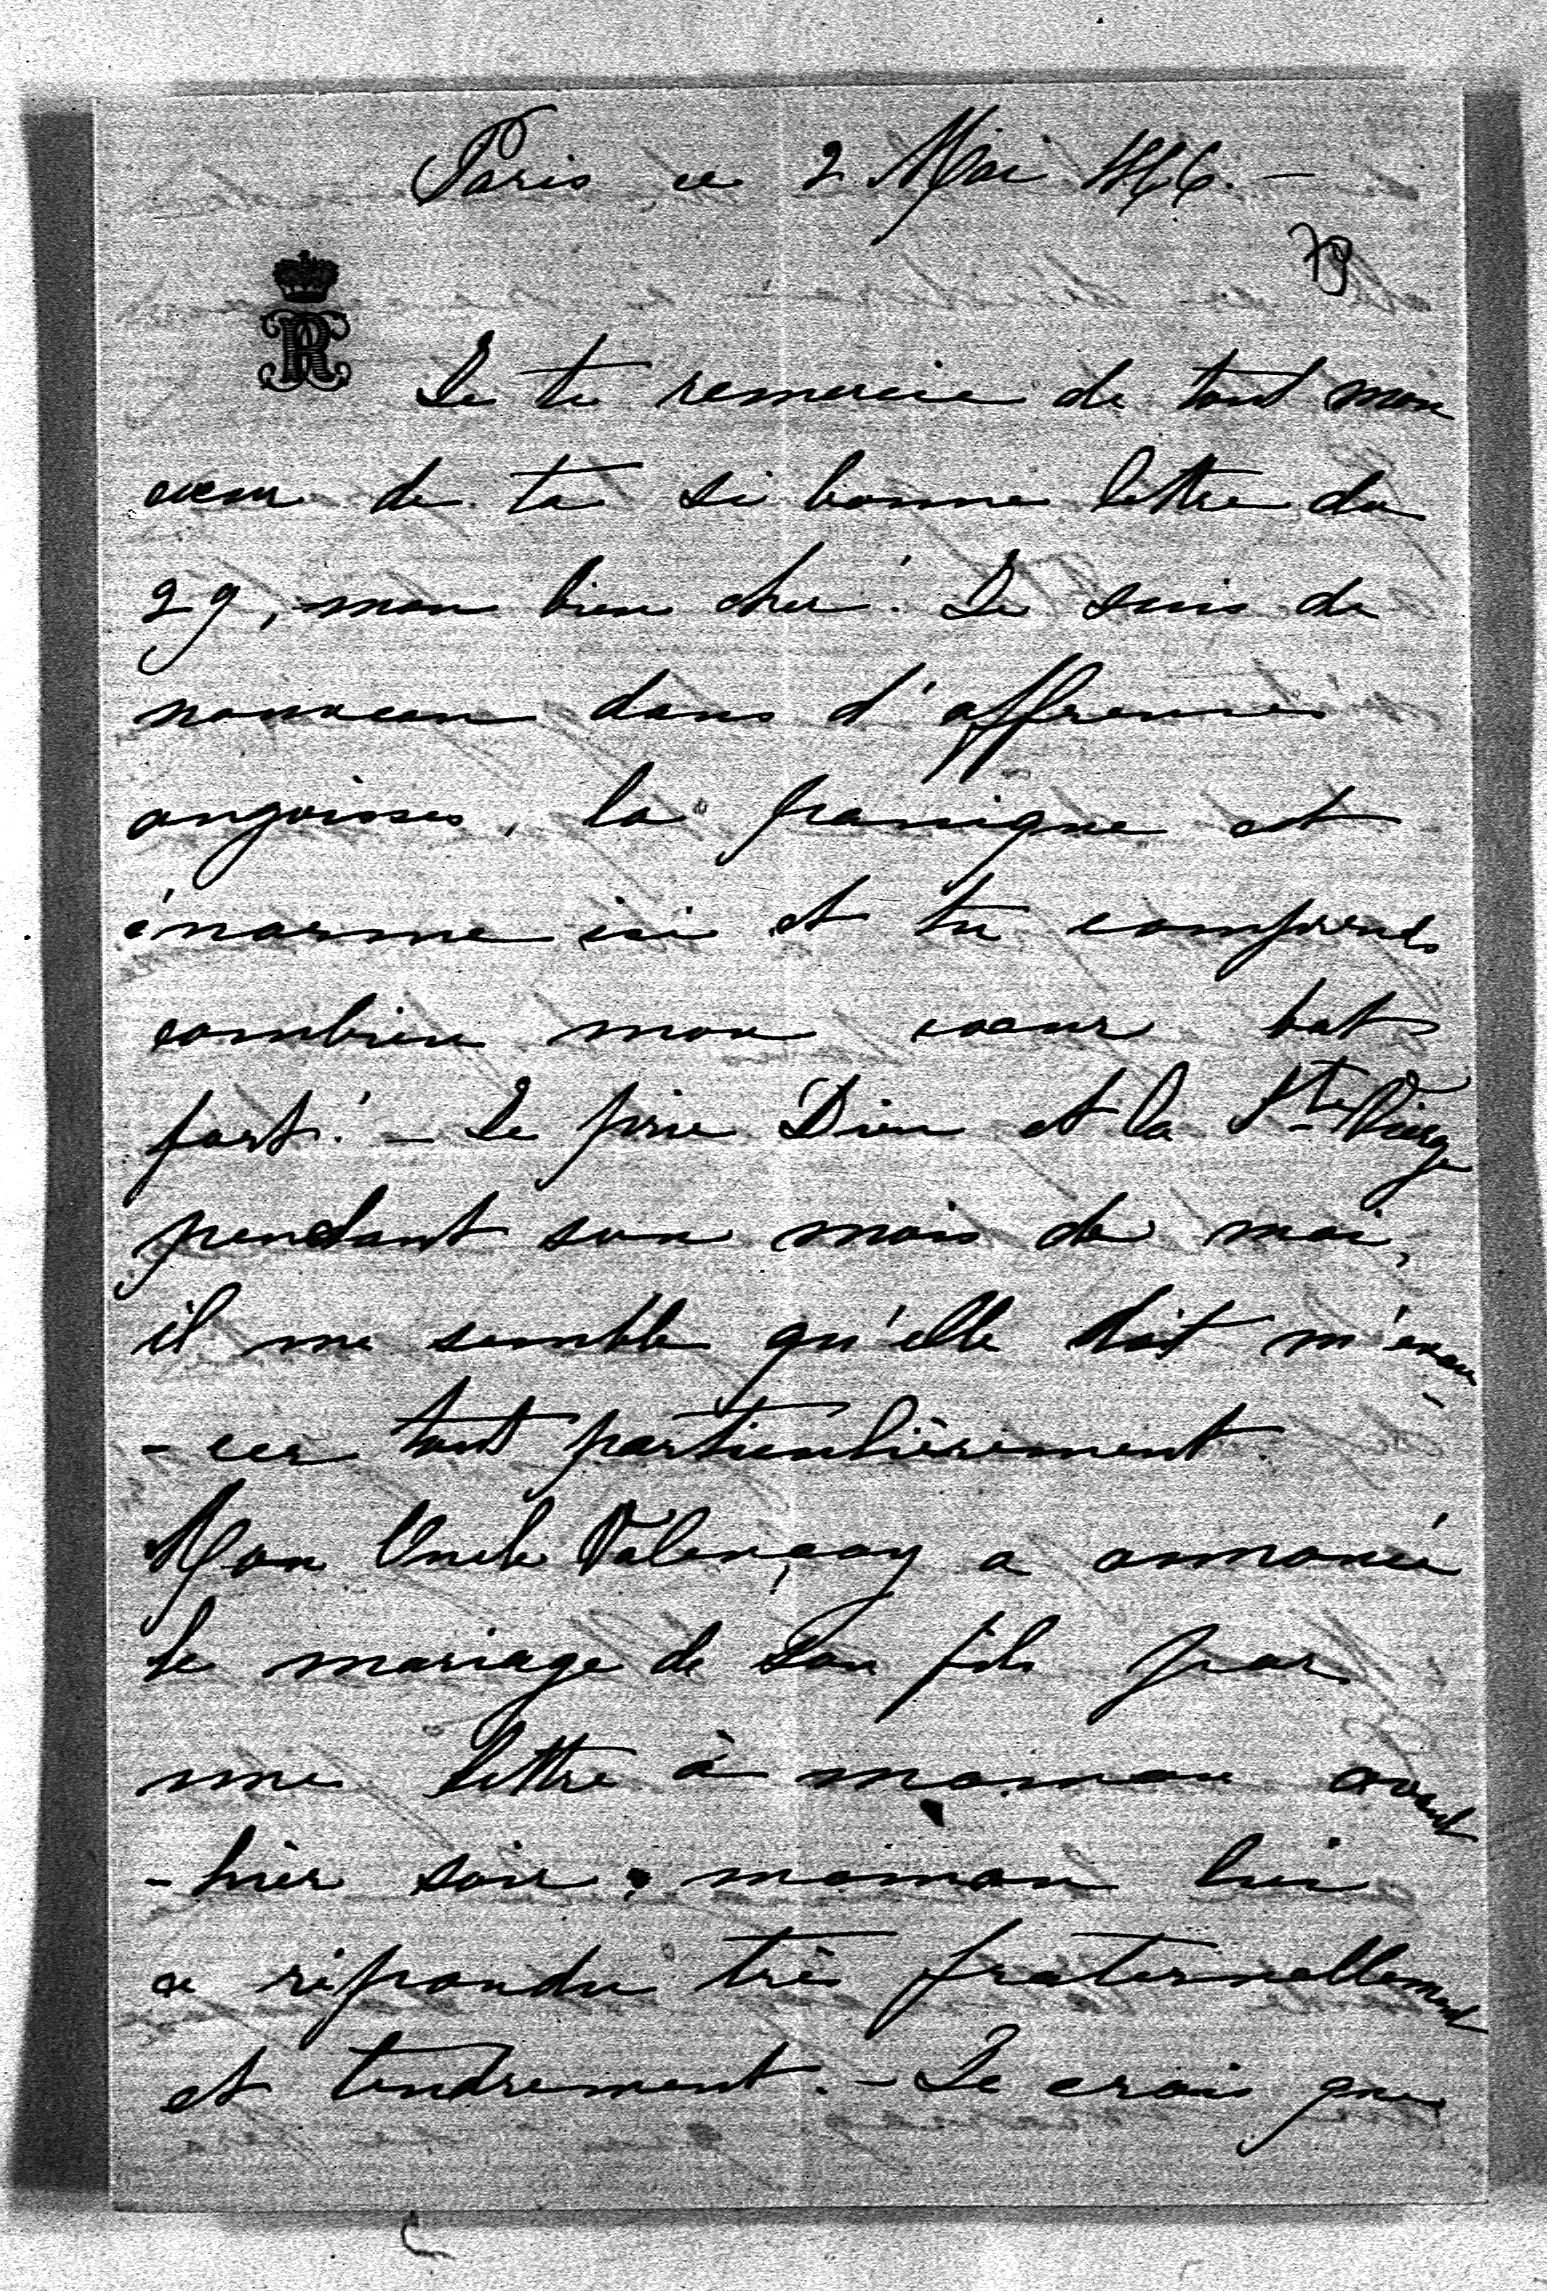 Paris ce 2 Mai
79
Je te remercie de tout mon
coeur de ta si bonne lettre du
29, mon bien cher! Je suis de
nouveau dans d'affreuses
angoisses, la panique est
énorme ici et tu comprends
combien mon coeur bat
fort! – Je prie Dieu et la Ste Vierge
pendant son mois de mai,
il me semble qu'elle doit m'exau-
-cer tout particulièrement.
Mon Oncle Valençay a annoncé
le mariage de son fils par
une lettre à maman avant
-hier soir; maman lui
a répondu très fraternellement
et tendrement. – Je crois que